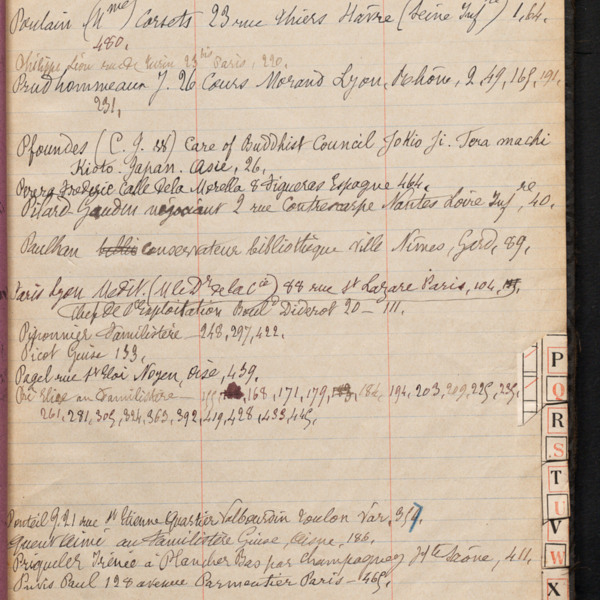 Poulain (Mme) Corsets 23 rue Thiers Havre (Seine Infre) 1,64.
480.
Philippe Léon rue de Turin 23 bis Paris, 220.
Prudhommeaux J. 26 Cours Morand Lyon. Rhône, 2, 49, 165, 191,
231,
Pfoundes (C. J. W) Care of Buddhist Council Jokio Ji. Tera machi
Kioto. Japan. Asie, 26.
Frederic Calle de la Morella 8 Figueras Espagne 464.
Pilard Gaudin négociant 2 rue Contrescarpe Nantes Loire Infre, 40.
Paulhan conservateur bibliothèque ville Nîmes, Gard, 89.
Paris Lyon Médit. (M le Dr de la Cie) 88 rue St Lazare Paris, 104,
Chef de l'Exploitation Bould Diderot 20 — 111.
Piponnier Familistère — 248, 297, 422.
Picot Guise 133.
Pagel rue St Eloi Noyon, Oise, 459.
au Familistère — 168, 171, 179, 184, 194, 203, 209, 225, 235,
261, 281, 305, 324, 363, 392, 419, 428, 433, 445,
Ponteil G. 21 rue St Etienne Quartier Valbourdin Toulon Var, 357.
au Familistère Guise, Aisne, 186.
Priqueler Irénée à Plancher Bas par Champagney Hte Saône, 411.
Privis Paul 128 avenue Parmentier Paris — 465.
P
Q
R
S
T
U
V
W
X